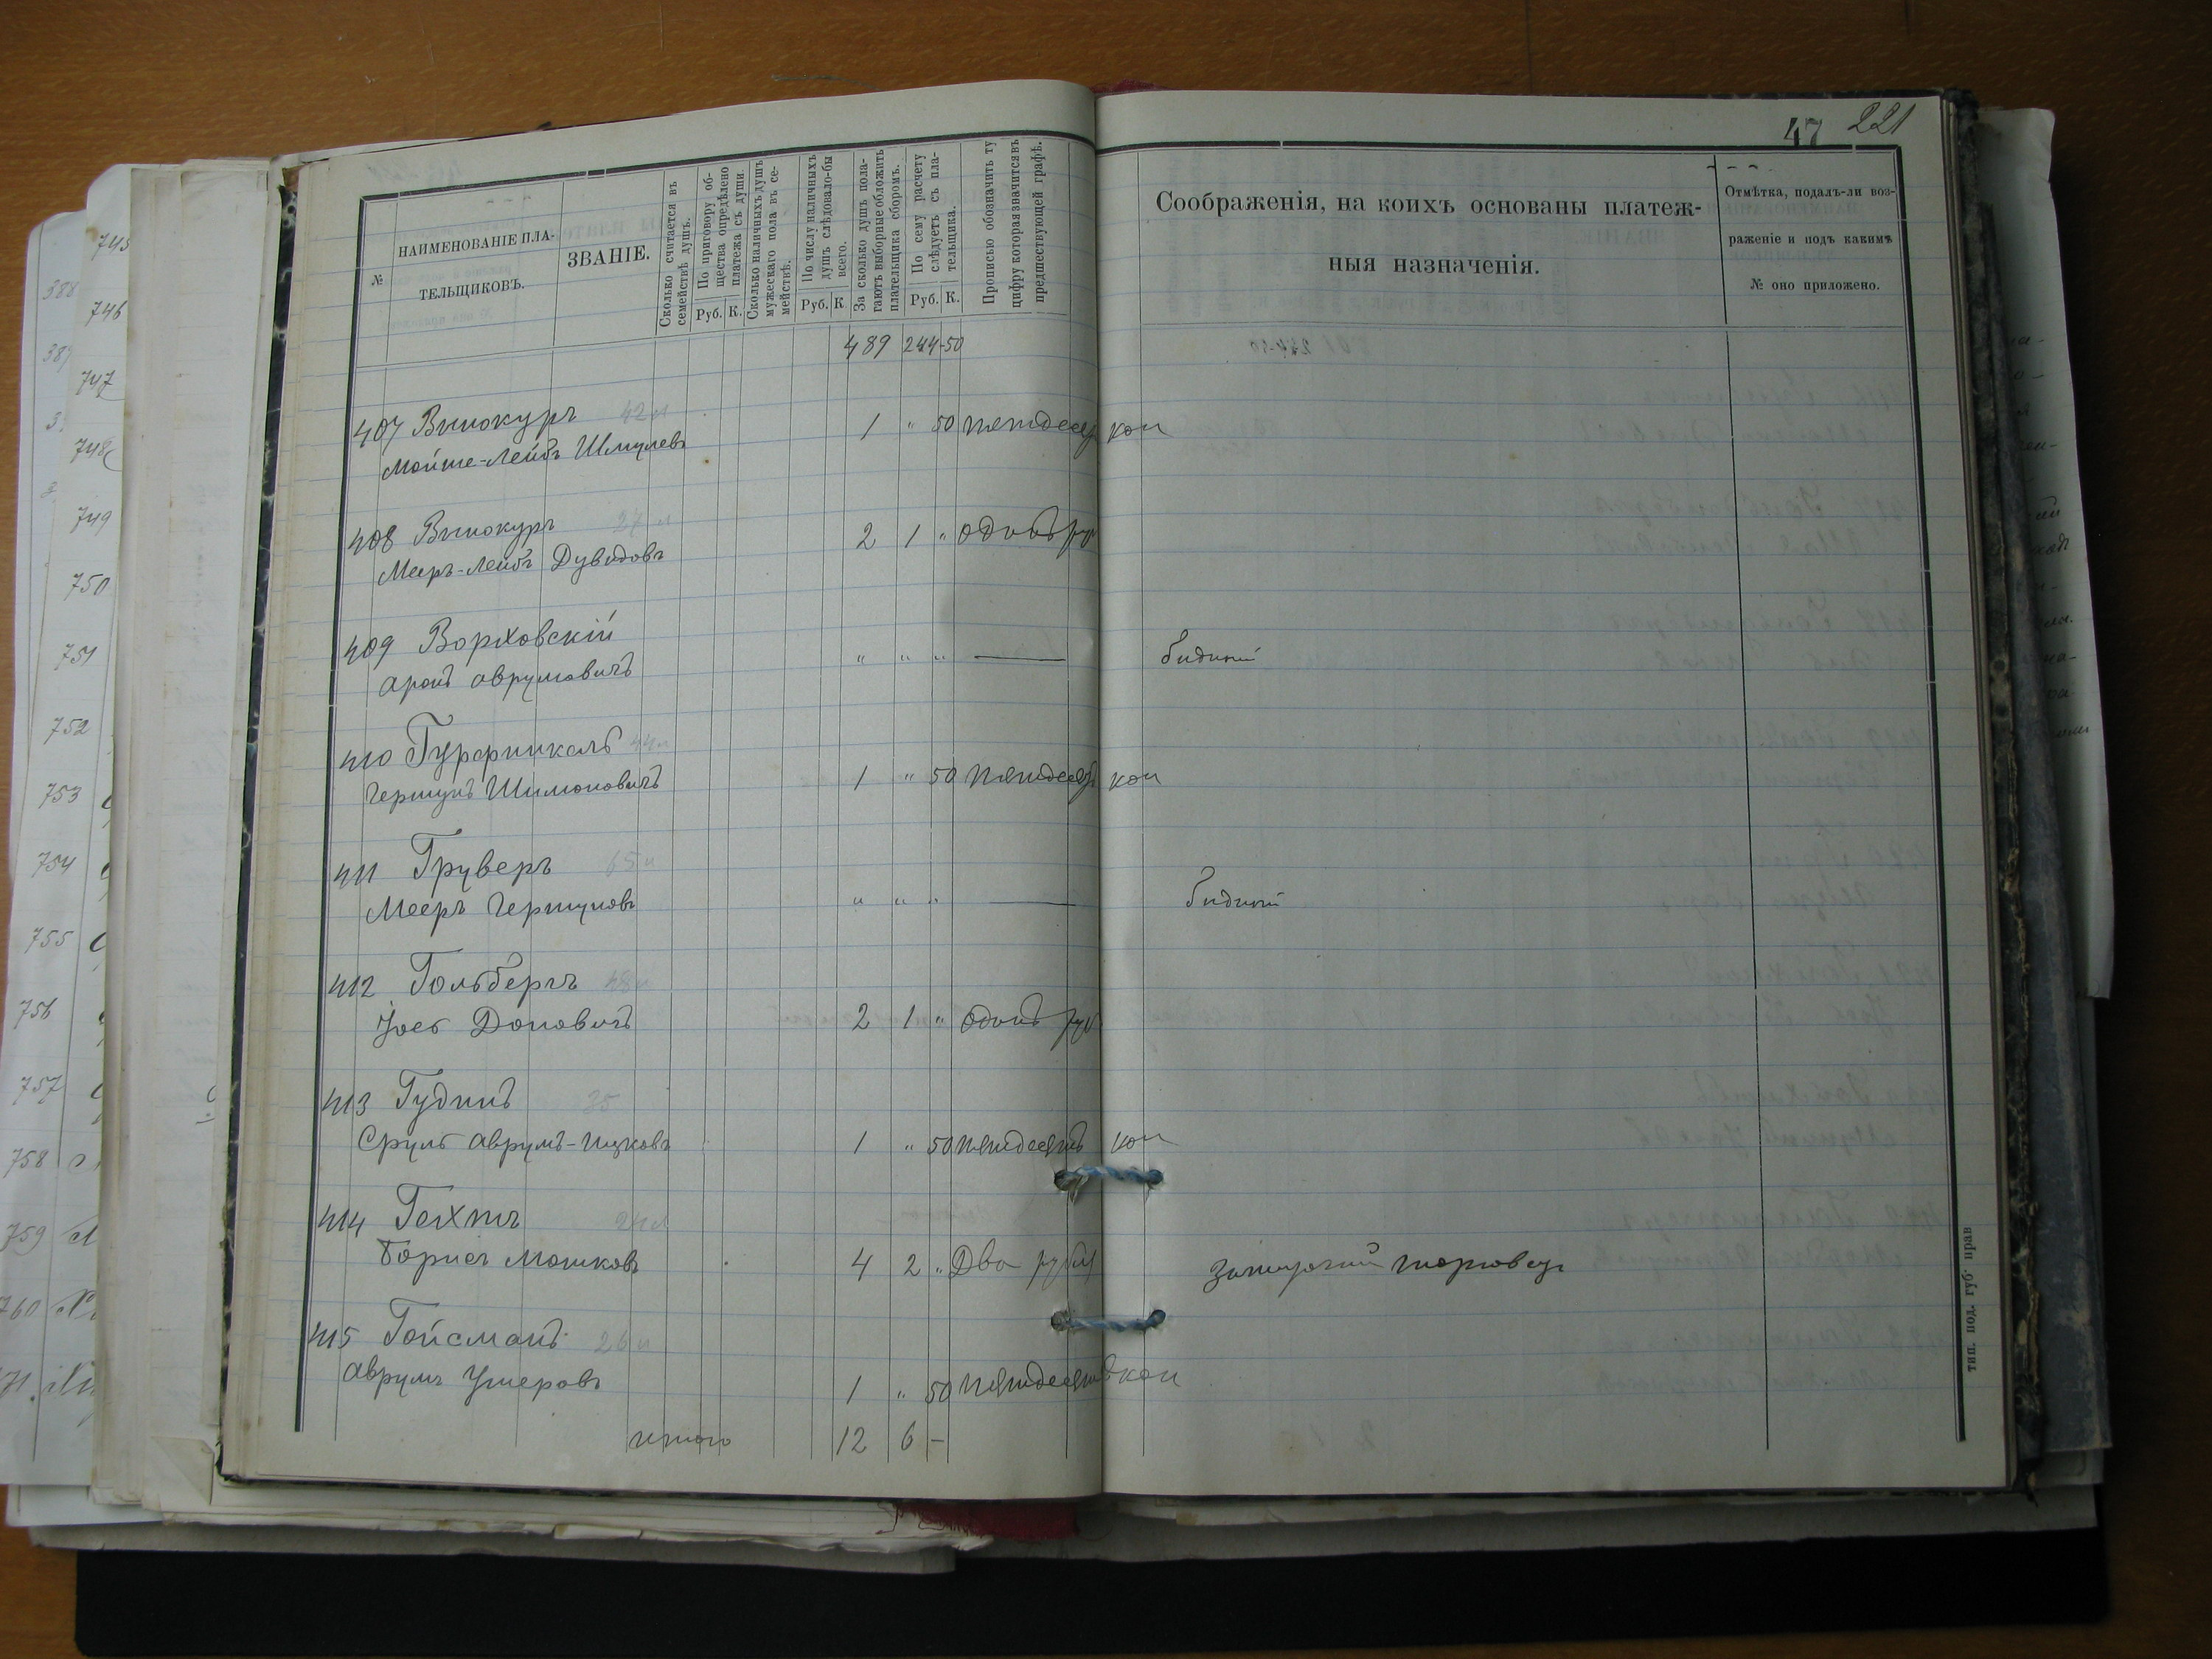 47 221
№
НАИМЕНОВАНІЕ ПЛА-
ТЕЛЬЩИКОВЪ.
ЗВАНІЕ.
Сколько считается въ
семействѣ душъ.
По приговору об-
щества опредѣлено
платежа съ души.
Руб. К.
Сколько наличныхъ душъ
мужескаго пола въ се-
мействѣ.
По числу наличныхъ
душъ слѣдовало-бы
всего.
Руб. К
За сколько душъ пола-
гаютъ выборные обложить
плательщика сборомъ.
По сему расчету
слѣдуетъ съ пла-
тельщика.
Руб. К.
Прописью обозначить ту
цифру которая значится въ
предшествующей графѣ.
Соображенія, на коихъ основаны платеж-
ныя назначенія.
Отмѣтка, подалъ-ли воз-
раженіе и подъ какимъ
№ оно приложено.
489 244-50
407 Винокуръ 42 л
Мойше-Лейбъ Шмулевъ 1 " 50 пятдесят коп
408 Винокуръ 27 л
Мееръ-Лейбъ Дувидовъ 2 1 " Одинъ руб
409 Ворховскій
Аронъ Аврумовичъ " " " — бидный
410 Гурфинкель 44 л
Гершунъ Шимоновичъ 1 " 50 пятдесят коп
411 Груверъ 65 л
Мееръ Гершуновъ " " " — бидный
412 Гольбергъ 48 л
Іось Доновичъ 2 1 " Одинъ руб
413 Гудинъ 35
Сруль Аврумъ-Ицковъ 1 " 50 пятдесятъ коп
414 Гехтъ 24 л
Борисъ Мошковъ 4 2 " Два рубл торговецъ
415 Гойсманъ 26 л
Аврумъ Ушеровъ 1 " 50 пятдесят коп
итого 12 6 -
тип. под. губ. прав
745
746
747
748
749
750
751
752
753
754
755
756
757
758
759
760